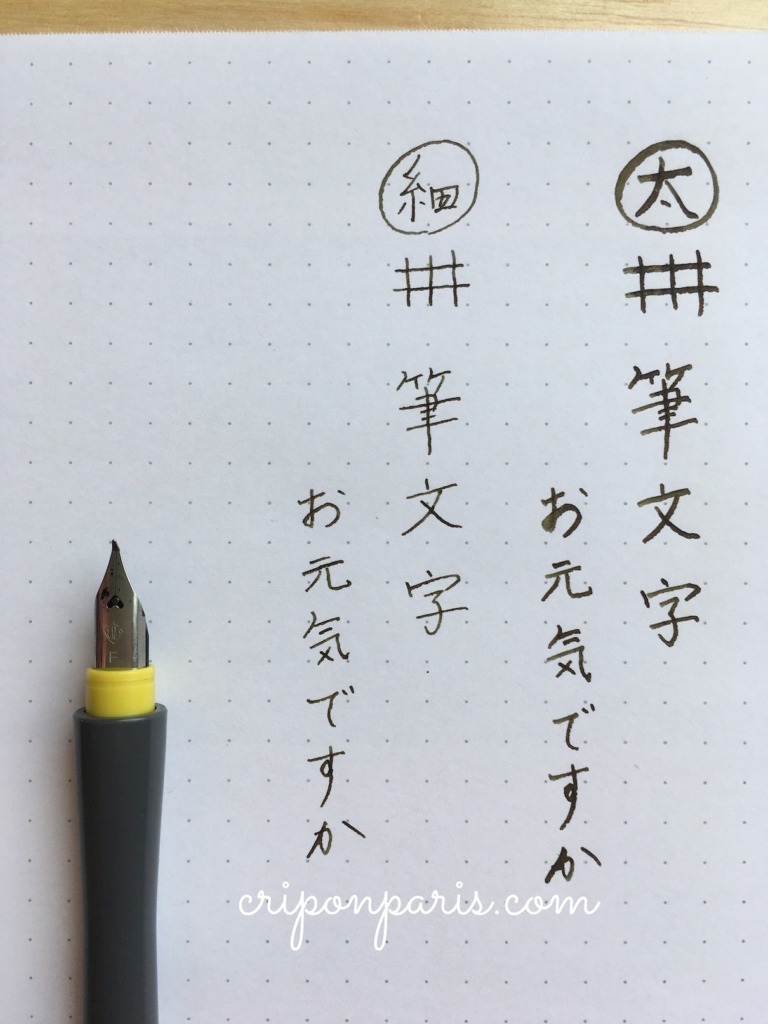 太
筆文字
お元気ですか
細
筆文字
お元気ですか
F
criponparis.com